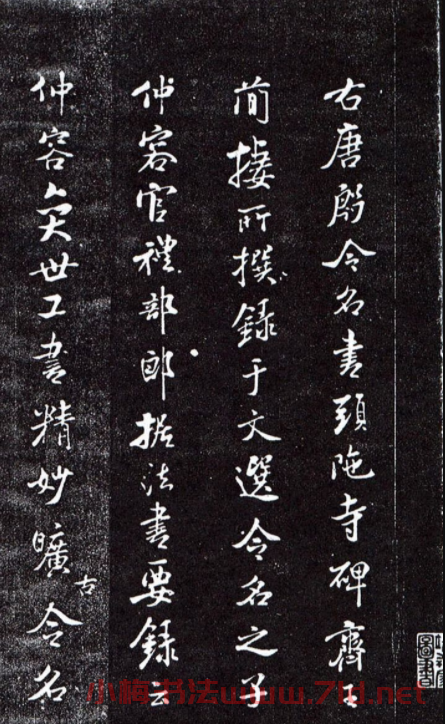 右唐殷令名書頭陁寺碑齊王
簡棲所撰録于文選令名之子
仲容官禮部郎據法書要録云
仲容奕世工書精妙曠古令名
小梅书法www.7ld.net